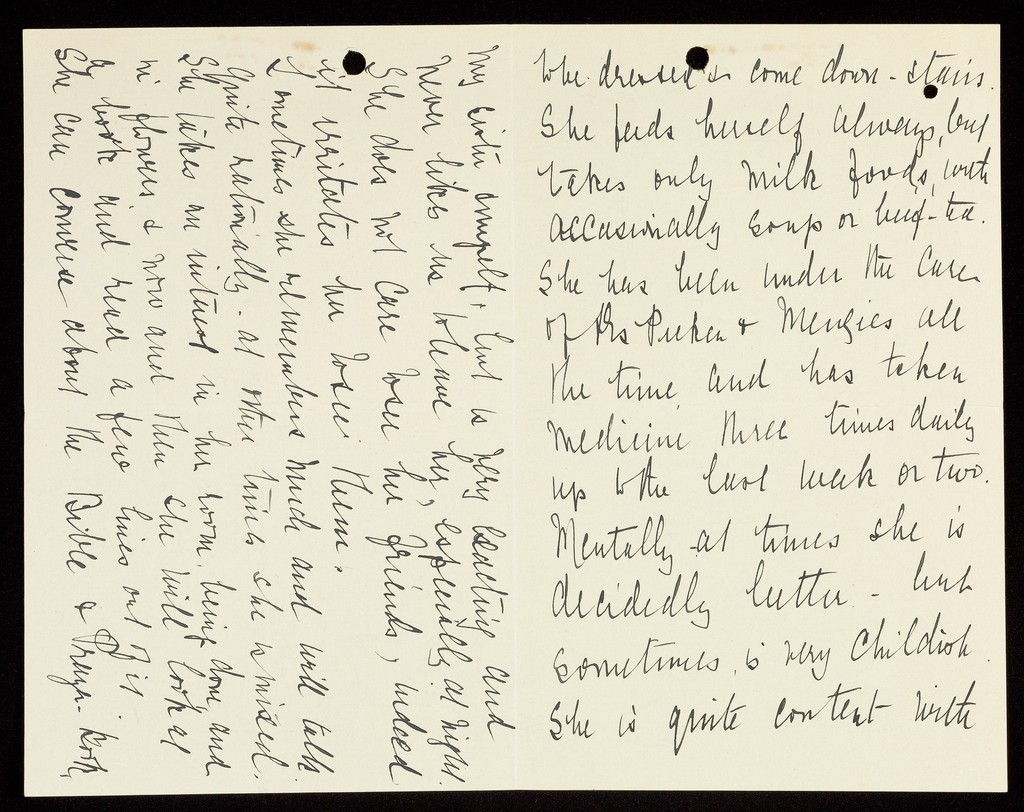 to be dressed & come down-stairs.
She feeds herself always, but
takes only milk foods, with
occasionally soup or beef-tea.
She has been under the care
of Drs Picken & Menzies all
the time, and has taken
medicine three times daily
up to the last week or two.
Mentally at times she is
decidedly better - but
sometimes, is very childish.
She is quite content with
my sister & myself, but is very exacting and
never likes us to leave her, especially at night.
She does not care to see her friends, indeed
it irritates her to see them.
Sometimes she remembers much and will talk
quite rationally - at other times she is mixed.
She takes an interest in her room being done and
in flowers & now and then she will look at
a book and read a few lines out of it.
She can converse about the Bible & Prayer-book,